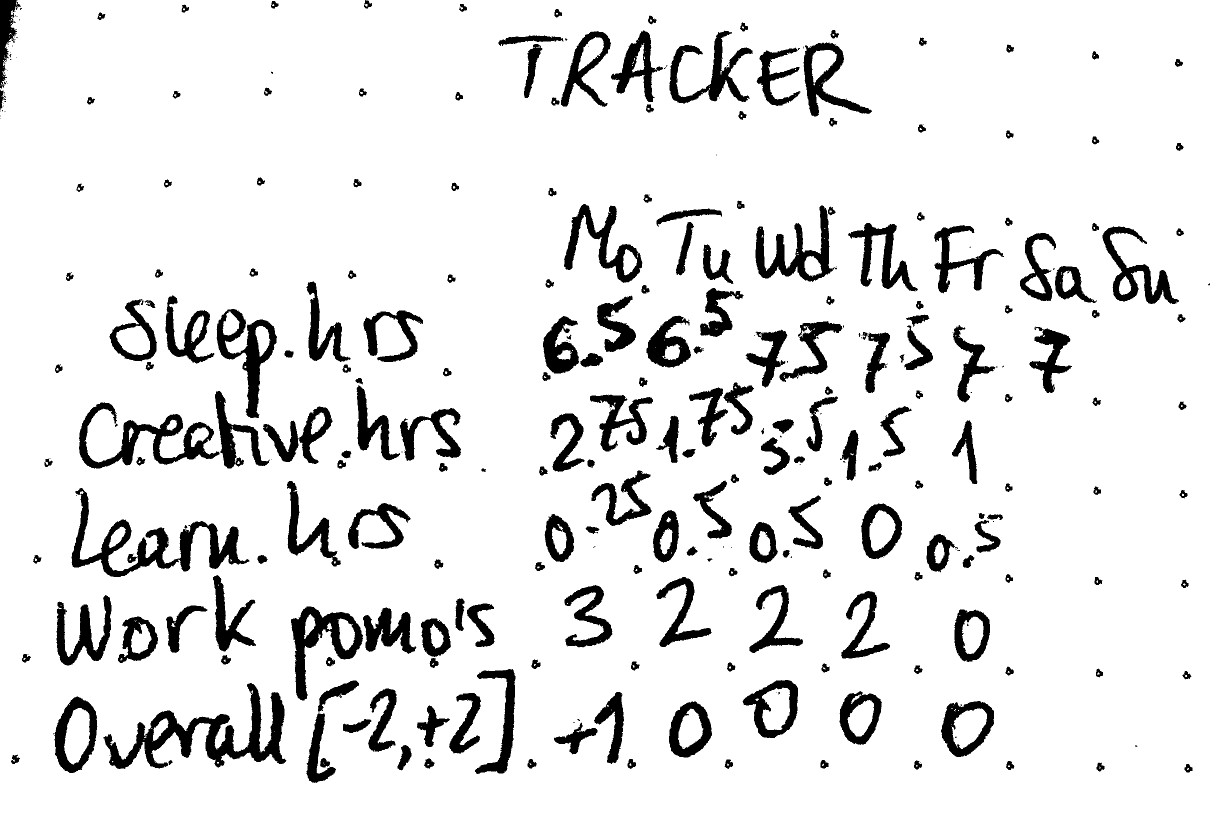 TRACKER
Mo Tu Wd Th Fr Sa Su
Sleep.hrs 6.5 6.5 7.5 7.5 7 7
Creative.hrs 2.75 1.75 3.5 1.5 1
Learn.hrs 0.25 0.5 0.5 0 0.5
Work pomo's 3 2 2 2 0
Overall [-2,+2] +1 0 0 0 0